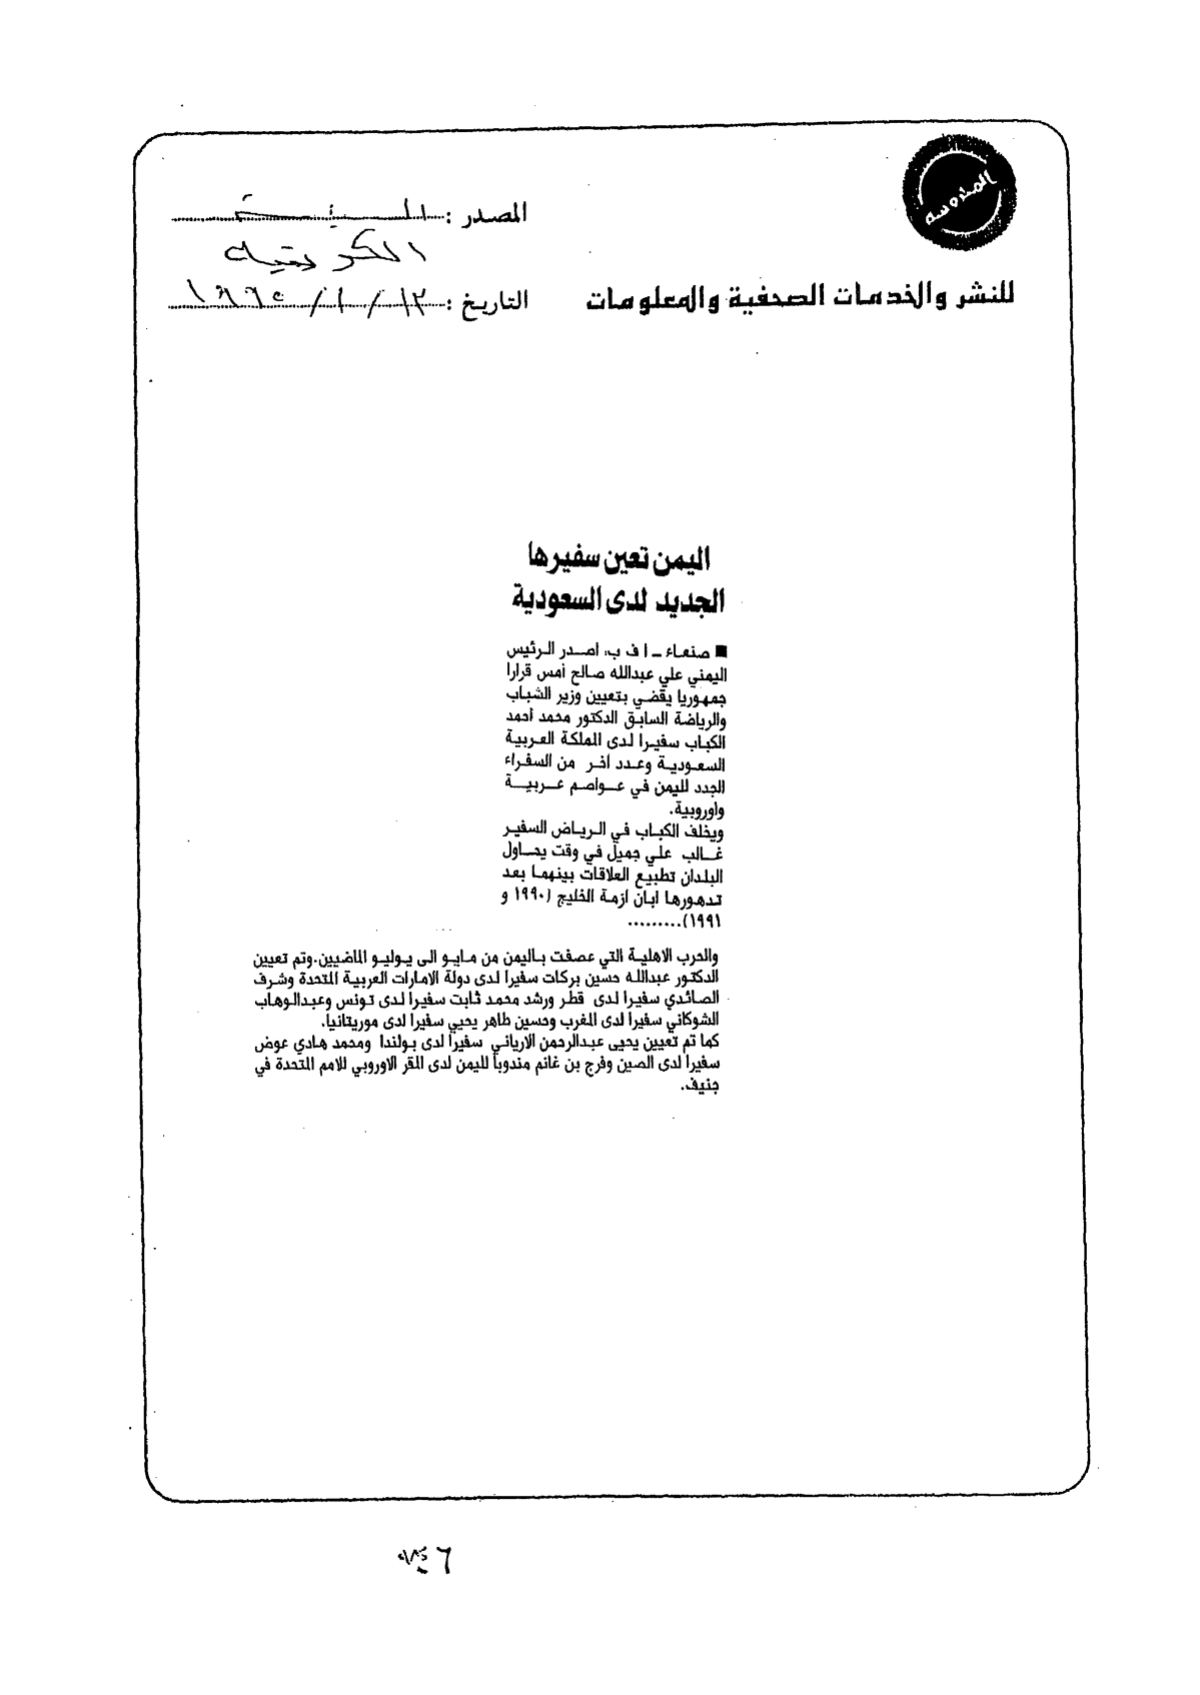 المصدر :
الكويتية
للنشر والخدمات الصحفية والمعلومات
التاريخ :
اليمن تعين سفيرها
الجديد لدى السعودية
■ صنعاء ـ ا ف ب، اصدر الرئيس
اليمني علي عبدالله صالح أمس قرارا
جمهوريا يقضي بتعيين وزير الشباب
والرياضة السابق الدكتور محمد أحمد
الكباب سفيرا لدى المملكة العربية
السعودية وعدد آخر من السفراء
الجدد لليمن في عواصم عربية
واوروبية.
ويخلف الكباب في الرياض السفير
غالب علي جميل في وقت يحاول
البلدان تطبيع العلاقات بينهما بعد
تدهورها ابان ازمة الخليج (١٩٩٠ و
١٩٩١).........
والحرب الاهلية التي عصفت باليمن من مايو الى يوليو الماضيين.وتم تعيين
الدكتور عبدالله حسين بركات سفيرا لدى دولة الامارات العربية المتحدة وشرف
الصائدي سفيرا لدى قطر ورشد محمد ثابت سفيرا لدى تونس وعبدالوهاب
الشوكاني سفيرا لدى المغرب وحسين طاهر يحيي سفيرا لدى موريتانيا.
كما تم تعيين يحيى عبدالرحمن الارياني سفيرا لدى بولندا ومحمد هادي عوض
سفيرا لدى الصين وفرج بن غانم مندوبا لليمن لدى المقر الاوروبي للامم المتحدة في
جنيف.